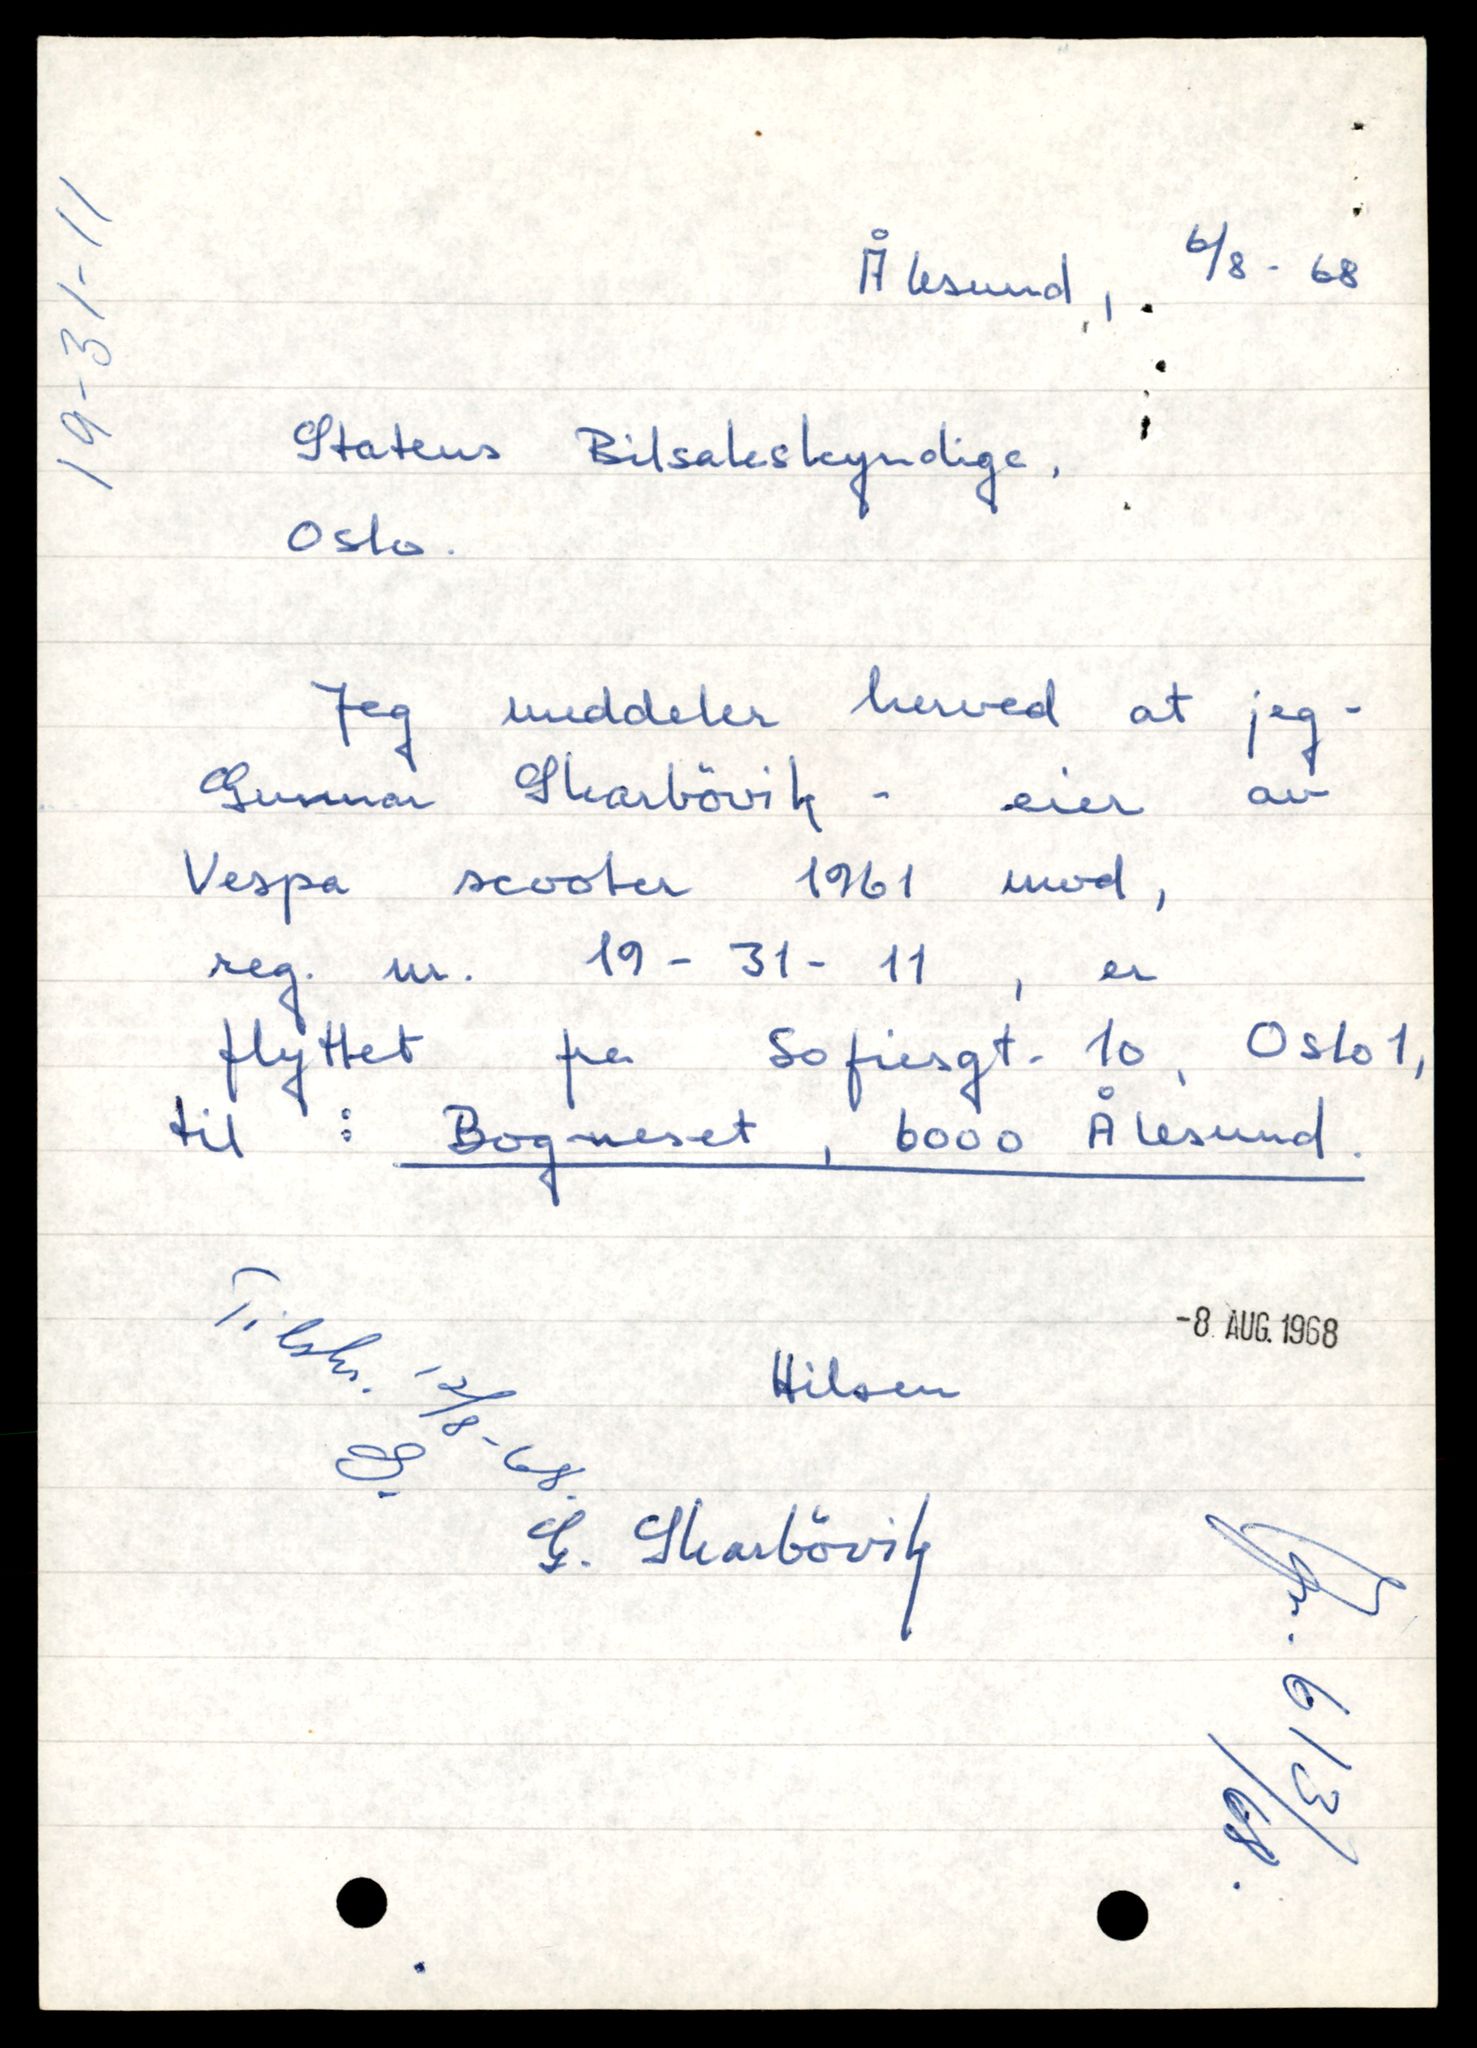 19-31-11
Ålesund, 6/8 - 68
Statens Bilsakskyndige,
Oslo.
Jeg meddeler herved at jeg -
Gunnar Skarbövik - eier av
Vespa scooter 1961 mod,
reg. nr. 19 - 31 - 11, er
flyttet fra Sofiesgt. 10, Oslo 1,
til : Bogneset, 6000 Ålesund.
-8. AUG. 1968
Tilskr. 12/8-68.
Hilsen
G. Skarbövik
613/68.